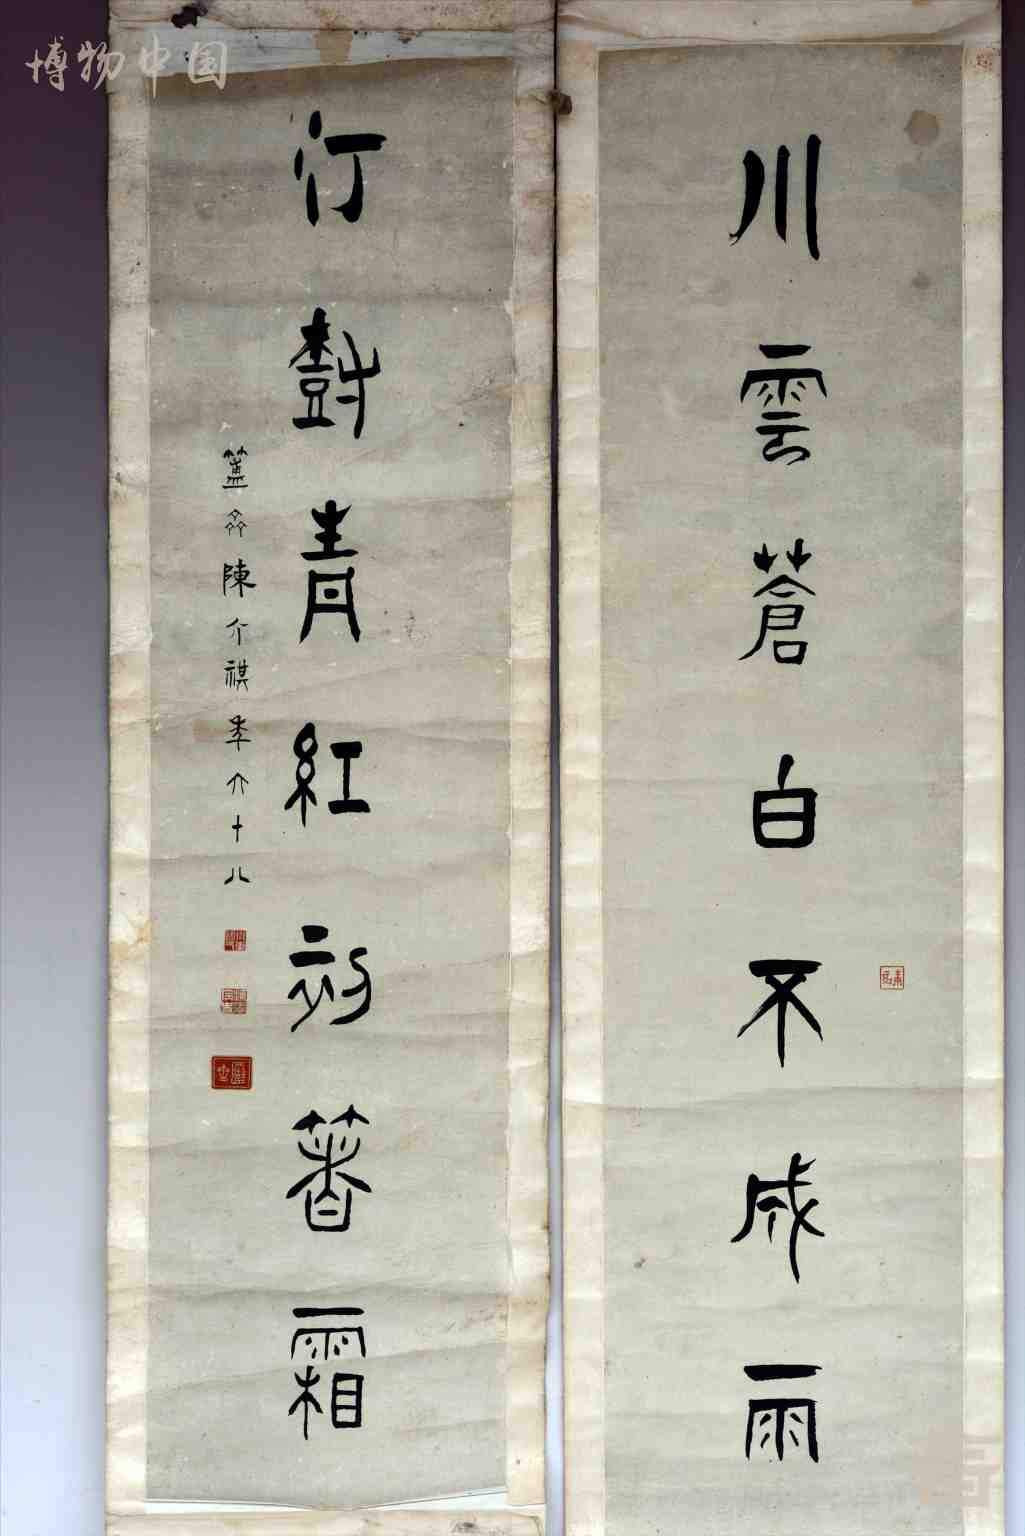 博物中国
川雲蒼白不成雨
汀樹青紅初著霜
簠齋陳介祺年六十八